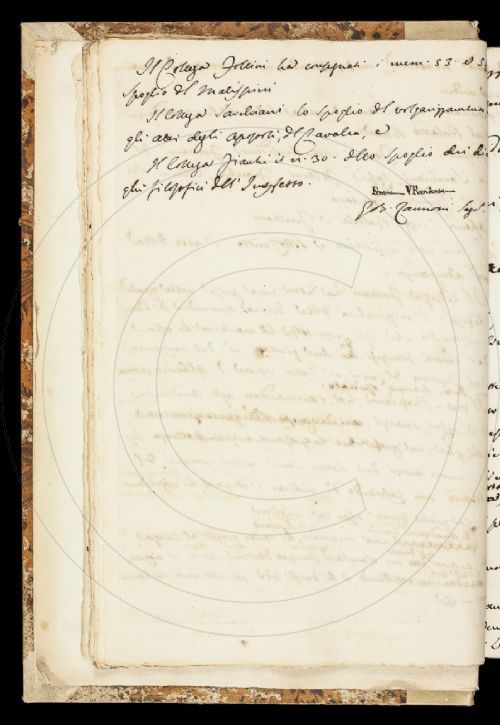 Il Collega Follini ha consegnati i num. 53. e 5
Spoglio del Malispini
Il Collega lo Spoglio del volgarizzamento
gli atti degli Apostoli, del Cavalca, e
Il Collega Fiacchi il n. 30. dello Spoglio dei di
ghi filosofici dell'
V. Presidente
G. B. Zannoni Seg.